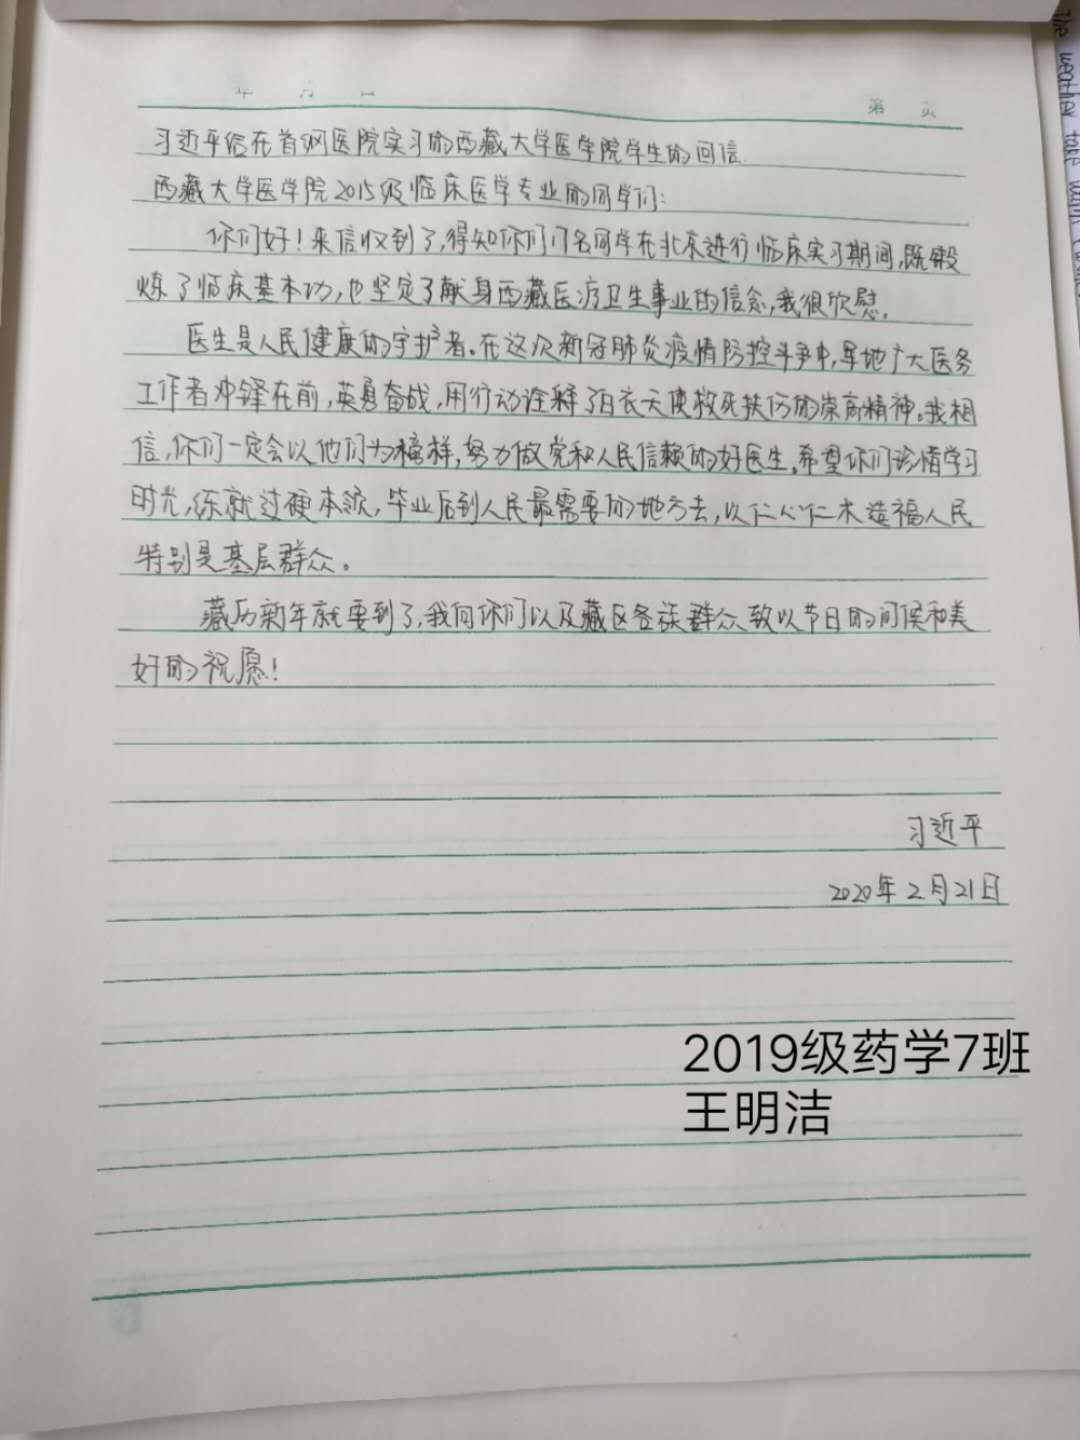 年 月 日
第 页
习近平给在首钢医院实习的西藏大学医学院学生的回信
西藏大学医学院2015级临床医学专业的同学们:
你们好!来信收到了,得知你们17名同学在北京进行临床实习期间,既锻
炼了临床基本功,也坚定了献身西藏医疗卫生事业的信念,我很欣慰。
医生是人民健康的守护者。在这次新冠肺炎疫情防控斗争中,军地广大医务
工作者冲锋在前,英勇奋战,用行动诠释了白衣天使救死扶伤的崇高精神。我相
信,你们一定会以他们为榜样,努力做党和人民信赖的好医生。希望你们珍惜学习
时光,练就过硬本领,毕业后到人民最需要的地方去,以仁心仁术造福人民
特别是基层群众。
藏历新年就要到了,我向你们以及藏区各族群众致以节日的问候和美
好的祝愿!
习近平
2020年2月21日
2019级药学7班
王明洁